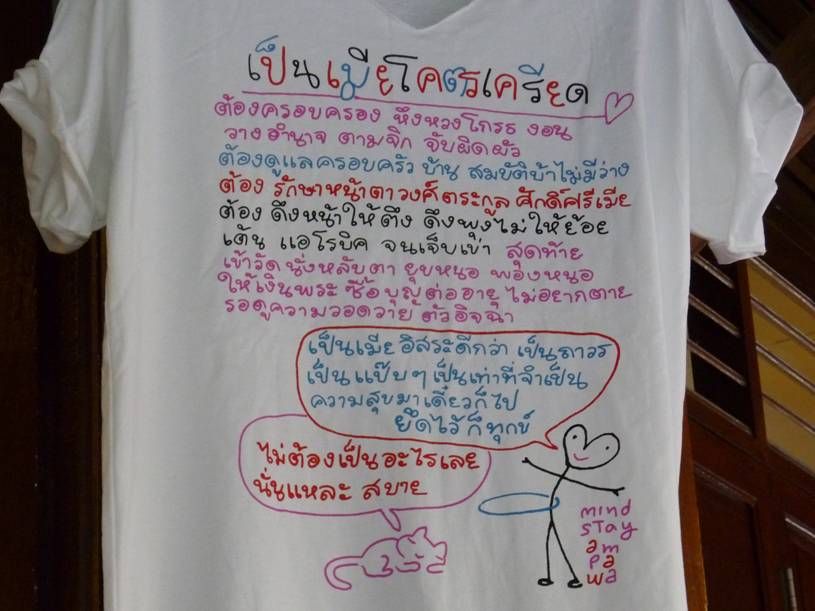 เป็นเมียโคตรเครียด
ต้องครอบครอง หึงหวงโกรธ งอน
วางอำนาจ ตามจิก จับผิดผัว
ต้องดูแลครอบครัว บ้าน สมบัติบ้าไม่มีว่าง
ต้อง รักษาหน้าตาวงศ์ตระกูล ศักดิ์ศรีเมีย
ต้อง ดึงหน้าให้ตึง ดึงพุงไม่ให้ย้อย
เต้น แอโรบิค จนเจ็บเข่า สุดท้าย
เข้าวัด นั่งหลับตา ยุบหนอ พองหนอ
ให้เงินพระ ซื้อบุญต่ออายุ ไม่อยากตาย
รอดูความวอดวาย ตัวอิจฉา
เป็นเมียอิสระดีกว่า เป็นถาวร
เป็นแป๊บๆ เป็นเท่าที่จำเป็น
ความสุขมาเดี๋ยวก็ไป
ยึดไว้ก็ทุกข์
ไม่ต้องเป็นอะไรเลย
นั่นแหละ สบาย
mind
stay
am
pa
wa